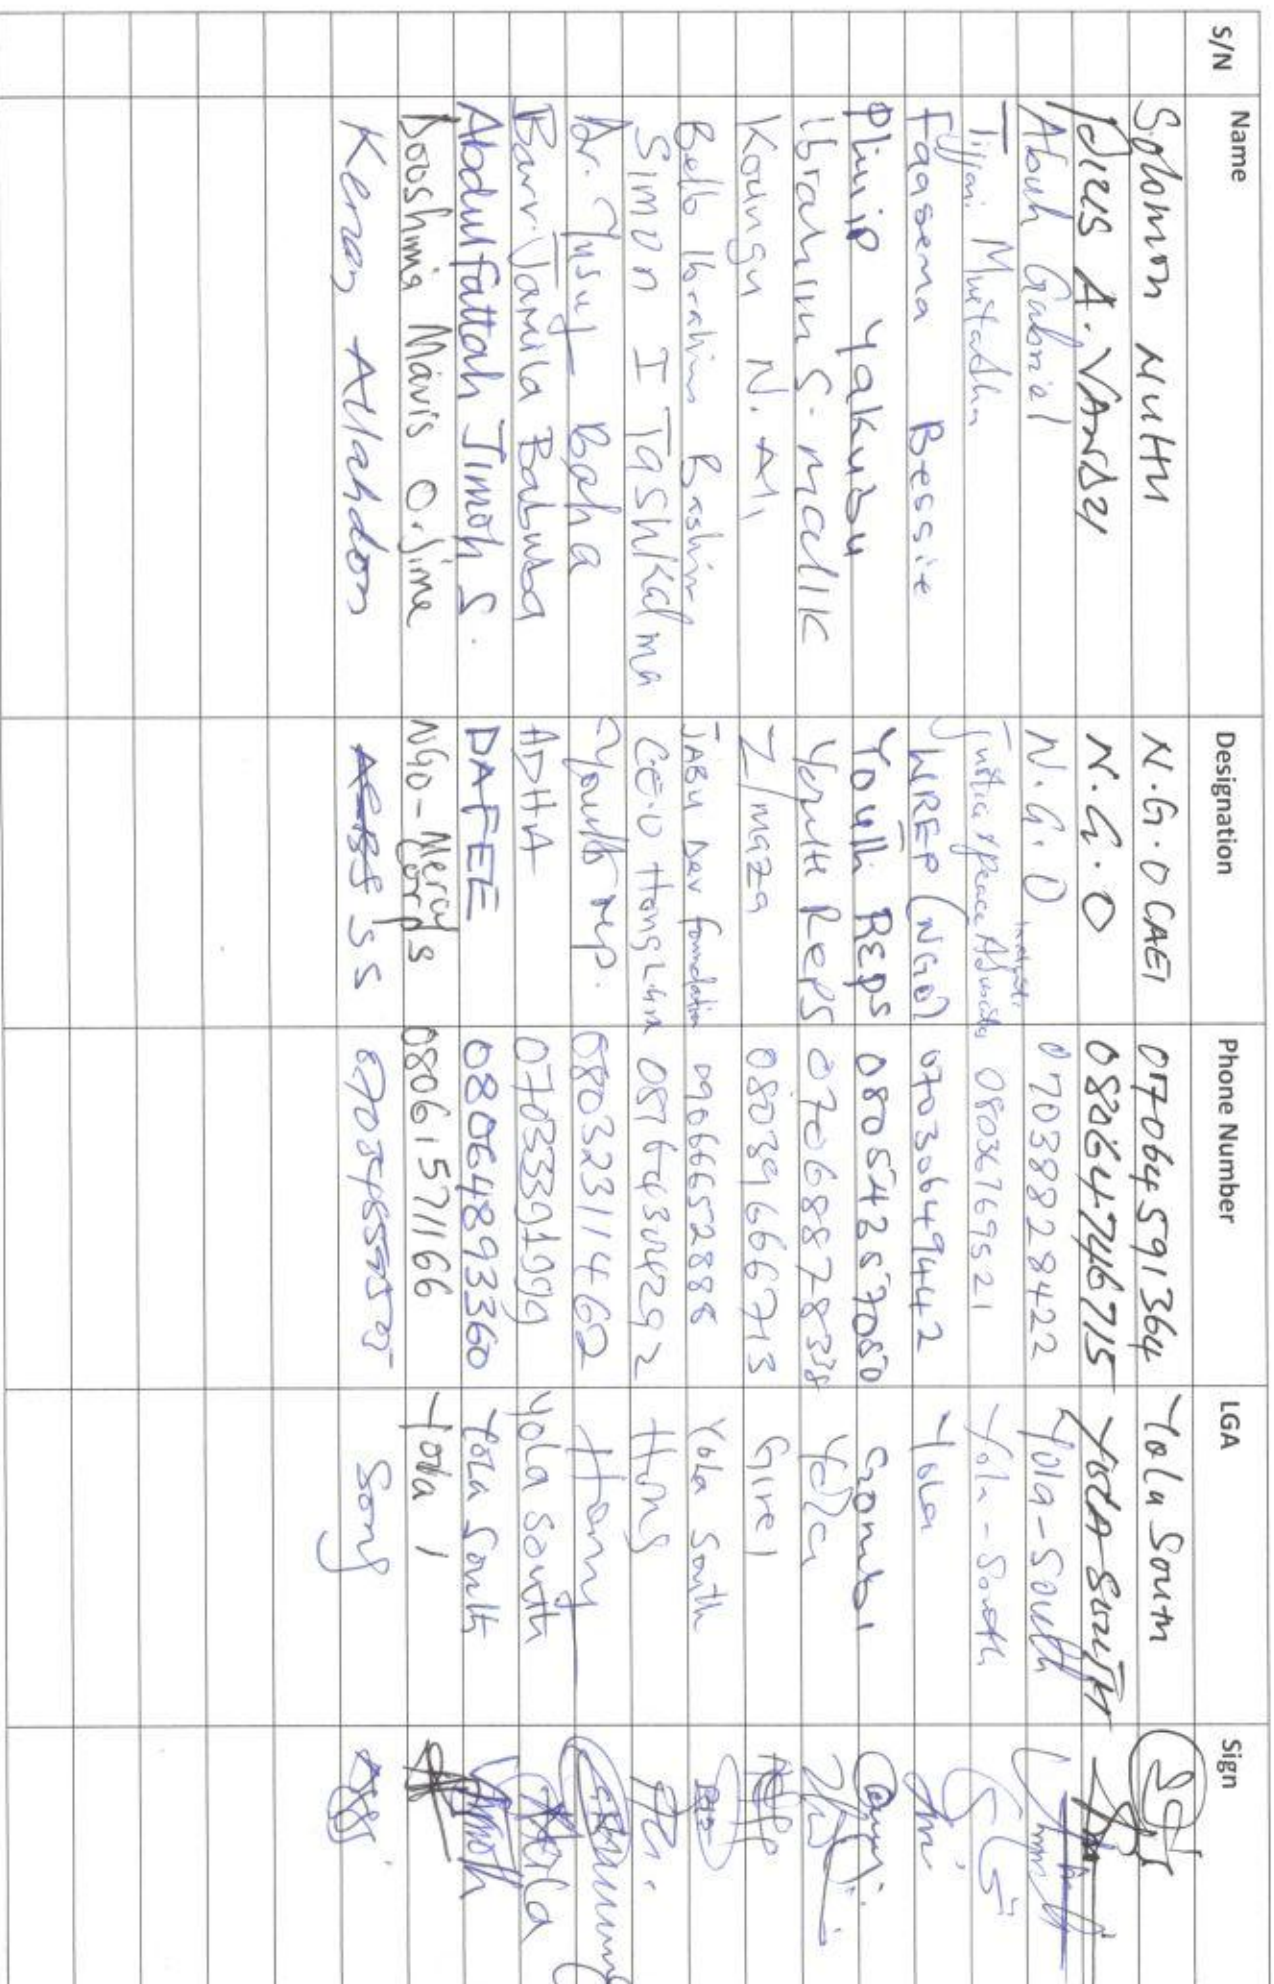 S/N Name Designation Phone Number LGA Sign
Solomon NUHU N.G.O CAEI 07064591364 Yola South
Pius A. VANDY N.G.O 08064746715 YOLA SOUTH
Abuh Gabriel N.G.O 07038828422 Yola-South
Tijjani Mustapha Justice & Peace 08036769521 Yola-South
Faasema Bessie WREP (NGO) 07030649442 Yola
Yakubu Youth Reps Gombi
Ibrahim S. Malik Youth Reps 07068878338 Yola
N. Ali Z/maza 08039666713 Girei
Bello Ibrahim Bashir JABU Dev foundation 09066652888 Yola South
Simon I Tashkalma C.E.O Hong Hong
Dr. Yusuf Baha Youth rep. 08032311462 Hong
Barr. Jamila Babuba ADHA 07033391999 Yola South
Abdulfattah Jimoh S. DAFEE 08064893360 Yola South
Dooshima Mavis Orjime NGO-Mercy Corps 08061571166 Yola
Allahdon SS Song